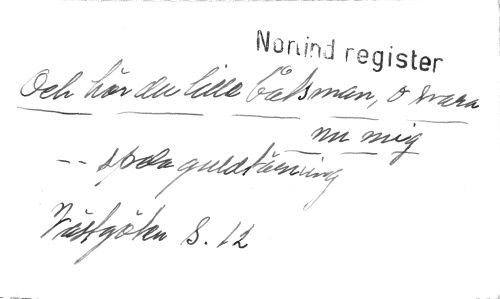 Norlind register
Och hör du lille båtsman, o svara
nu mig
-- spela guldtärning
Västgöten S. 12